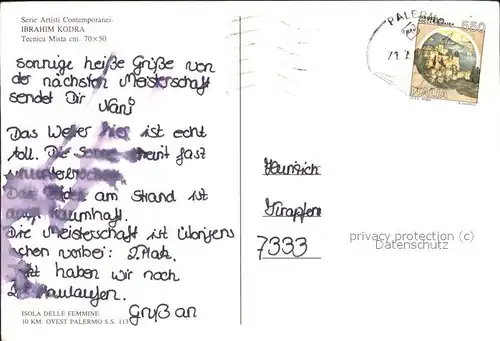 Serie Artisti Contemporanei
IBRAHIM KODRA
Tecnica Mista cm. 70×50
sonnige heiße Grüße von
der nächsten Meisterschaft
sendet Dir
Das Wetter hier ist echt
toll. Die Sonne scheint fast
ununterbrochen
Das am Strand ist
auch traumhaft.
Die Meisterschaft ist übrigens
schon vorbei: 7. Platz.
Jetzt haben wir noch
Gruß an
ISOLA DELLE FEMMINE
10 KM. OVEST PALERMO S.S. 113
PALERMO
550
Heinrich
7333
privacy protection (c)
Datenschutz